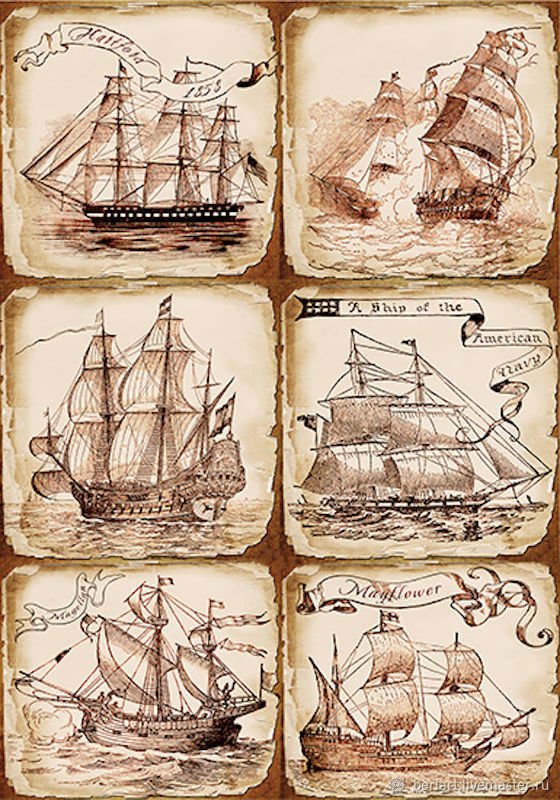 Hartford
1858
A Ship of the
American
Navy
Magellan
Mayflower
berlart.livemaster.ru